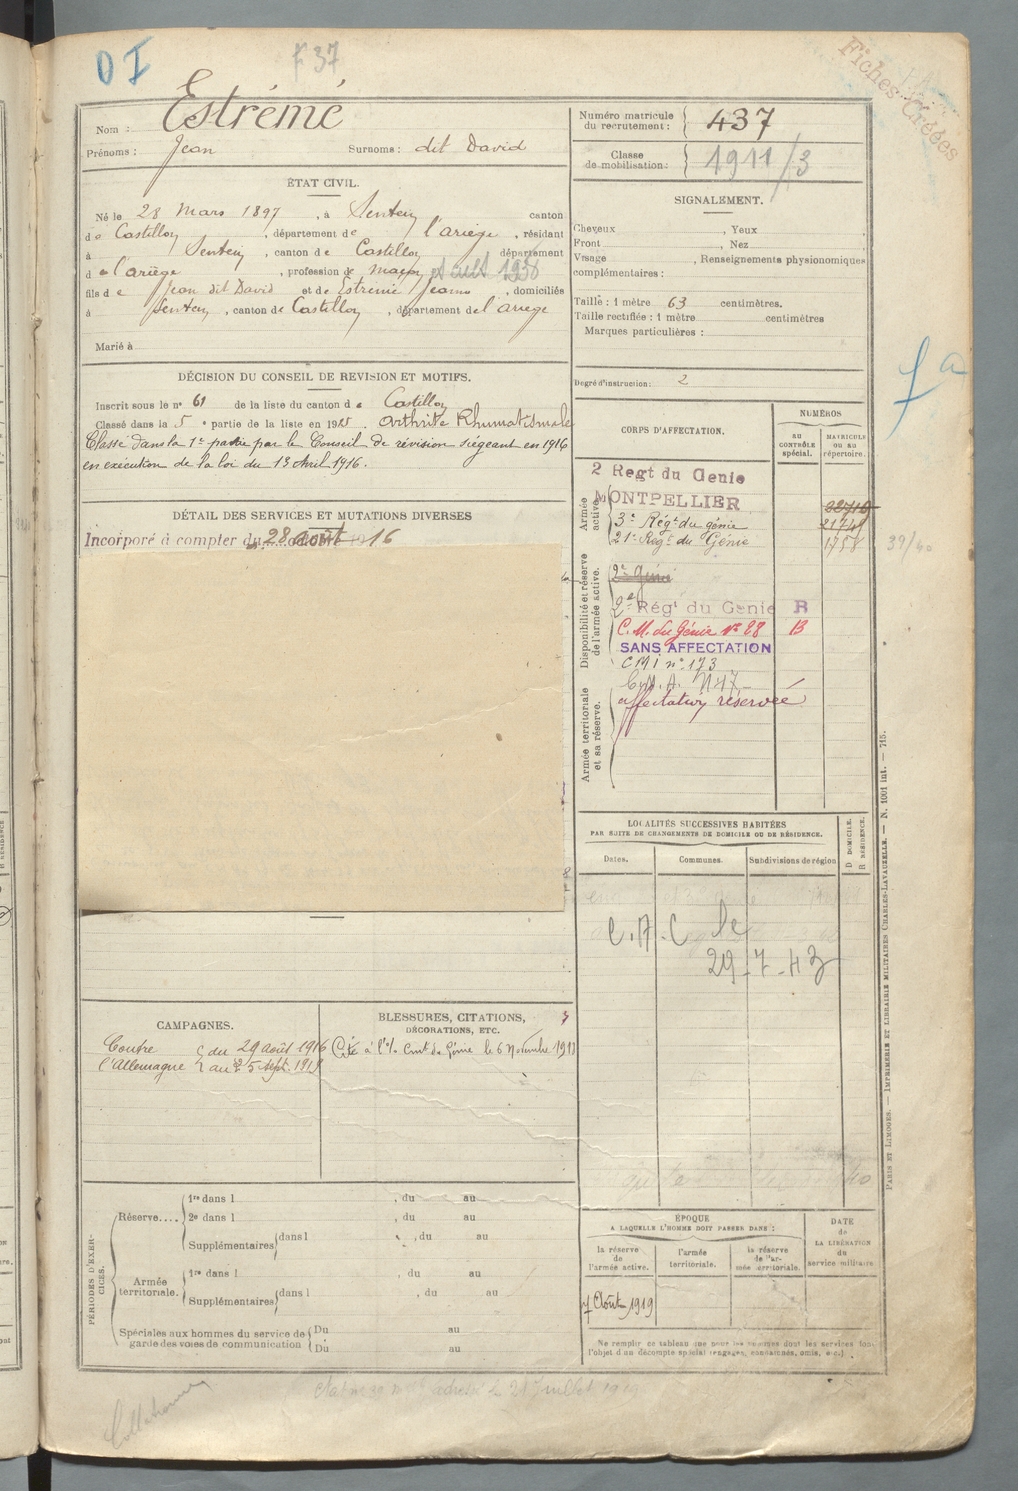 D I
F 37
Fiches Créées
Nom : Estrémé
Prénoms : Jean Surnoms : dit David
Numéro matricule du recrutement : 437
Classe de mobilisation : 1911/3
ÉTAT CIVIL.
Né le 28 Mars 1897, à Sentein canton
de Castillon, département de l'ariège, résidant
à Sentein, canton de Castillon département
de l'ariège, profession de maçon et cult 1938
fils de Jean dit David et de Estrémé Jeanne, domiciliés
à Sentein, canton de Castillon, département de l'ariège
Marié à
SIGNALEMENT.
Cheveux , Yeux
Front , Nez
Visage , Renseignements physionomiques
complémentaires :
Taille : 1 mètre 63 centimètres.
Taille rectifiée : 1 mètre centimètres
Marques particulières :
Degré d'instruction : 2
fa
DÉCISION DU CONSEIL DE REVISION ET MOTIFS.
Inscrit sous le nº 61 de la liste du canton de Castillon
Classé dans la 5e partie de la liste en 1915. Arthrite Rhumatismale
Classé dans la 1e partie par le Conseil de révision siégeant en 1916
en exécution de la loi du 13 Avril 1916.
DÉTAIL DES SERVICES ET MUTATIONS DIVERSES
Incorporé à compter du 28 août 1916
CORPS D'AFFECTATION.
NUMÉROS
au CONTRÔLE spécial.
MATRICULE ou au répertoire.
Armée active.
2 Regt du Genie
MONTPELLIER 22710
3e Régt du génie 21749
21e Régt du Génie 1758
39/40
Disponibilité et réserve de l'armée active.
2e Génie
2e Régt du Genie R
C. M. du Génie No 28 B
SANS AFFECTATION
CMI nº 173
Armée territoriale et sa réserve.
C.M.A. N47
affectation réservée
LOCALITÉS SUCCESSIVES HABITÉES
PAR SUITE DE CHANGEMENTS DE DOMICILE OU DE RÉSIDENCE.
Dates. Communes. Subdivisions de région
D DOMICILE.
R RÉSIDENCE.
C.A.C le
29-7-43
CAMPAGNES.
Contre du 29 août 1916
l'Allemagne au 5 Sept. 1919
BLESSURES, CITATIONS, DÉCORATIONS, ETC.
Cité à l'o/. Cmt du Génie le 6 Novembre 1918
PÉRIODES D'EXERCICES.
Réserve....
1re dans l , du au
2e dans l , du au
Supplémentaires dans l , du au
Armée territoriale.
1re dans l , du au
Supplémentaires dans l , du au
Spéciales aux hommes du service de garde des voies de communication
Du au
Du au
ÉPOQUE
A LAQUELLE L'HOMME DOIT PASSER DANS :
la réserve de l'armée active.
l'armée territoriale.
la réserve de l'armée territoriale.
DATE de LA LIBÉRATION du service militaire
7 Août 1919
Ne remplir ce tableau que pour les hommes dont les services font
l'objet d'un décompte spécial (engagés, condamnés, omis, etc.).
PARIS ET LIMOGES. — IMPRIMERIE ET LIBRAIRIE MILITAIRES CHARLES-LAVAUZELLE. — N. 1001 int. — 715.
Collationné
21 Juillet 1919